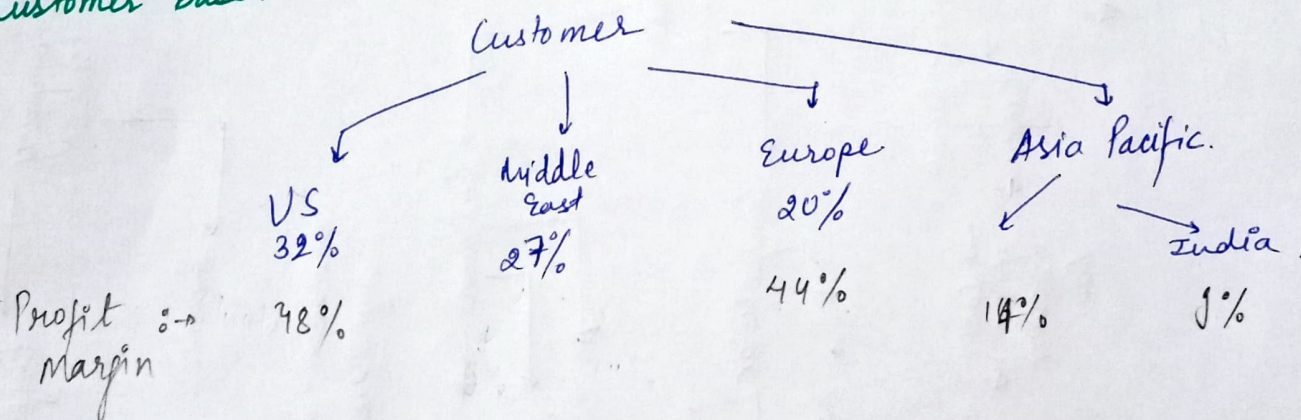 Customer
Customer
US
32%
Middle
East
27%
Europe
20%
Asia Pacific.
India
Profit :→
Margin
48%
44%
9%